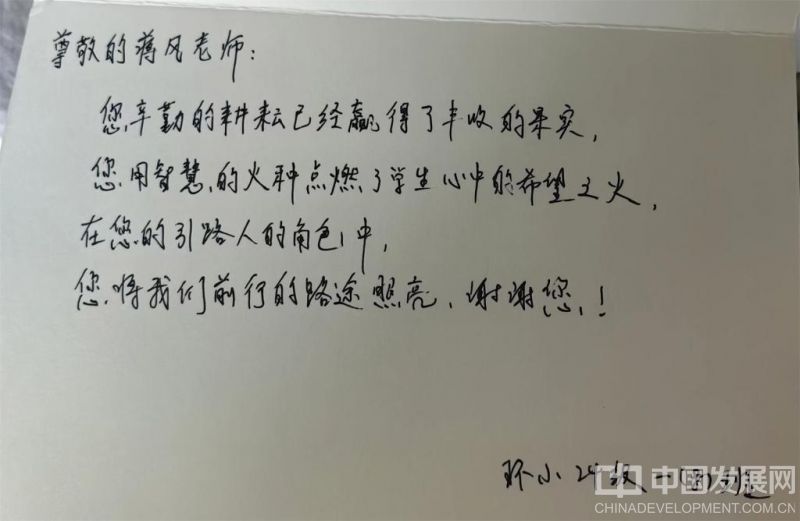 尊敬的蒋风老师：
您辛勤的耕耘已经赢得了丰收的果实，
您用智慧的火种点燃了学生心中的希望之火，
在您的引路人的角色中，
您将我们前行的路途照亮，谢谢您！
环小24级一
中国发展网
CHINADEVELOPMENT.COM.CN